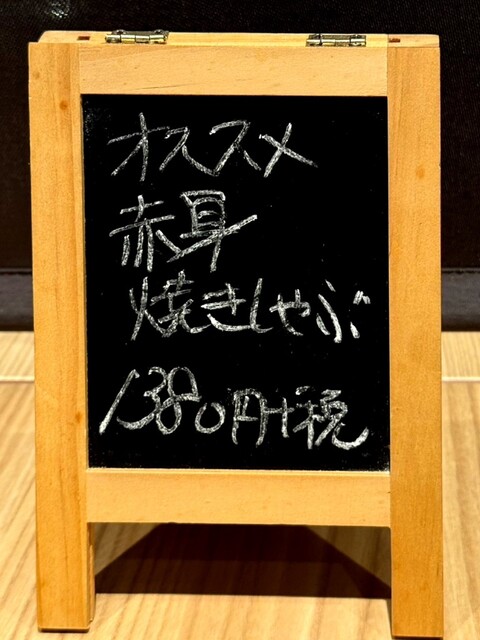 オススメ
赤耳
焼きしゃぶ
1380円+税